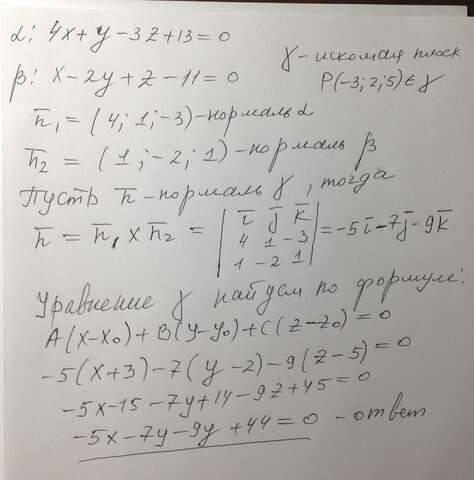 α: 4x+y-3z+13=0
γ-искомая плоск
β: x-2y+z-11=0
P(-3;2;5)∈γ
n̅₁=(4;1;-3)-нормаль α
n̅₂=(1;-2;1)-нормаль β
Пусть n̅-нормаль γ, тогда
n̅=n̅₁×n̅₂=|i̅ j̅ k̅|=-5i̅-7j̅-9k̅
4 1 -3
1 -2 1
Уравнение γ найдем по формуле:
A(x-x₀)+B(y-y₀)+C(z-z₀)=0
-5(x+3)-7(y-2)-9(z-5)=0
-5x-15-7y+14-9z+45=0
-5x-7y-9y+44=0 -ответ